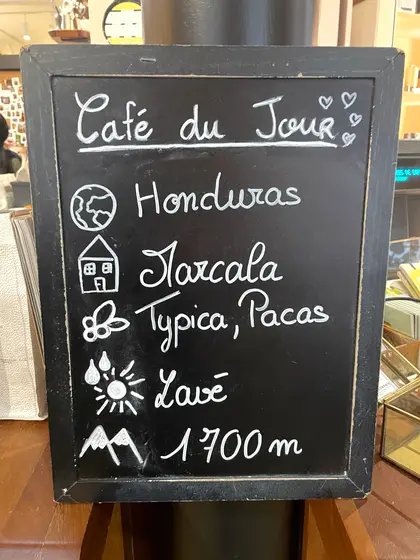 Café du Jour
Honduras
Marcala
Typica, Pacas
Lavé
1700 m